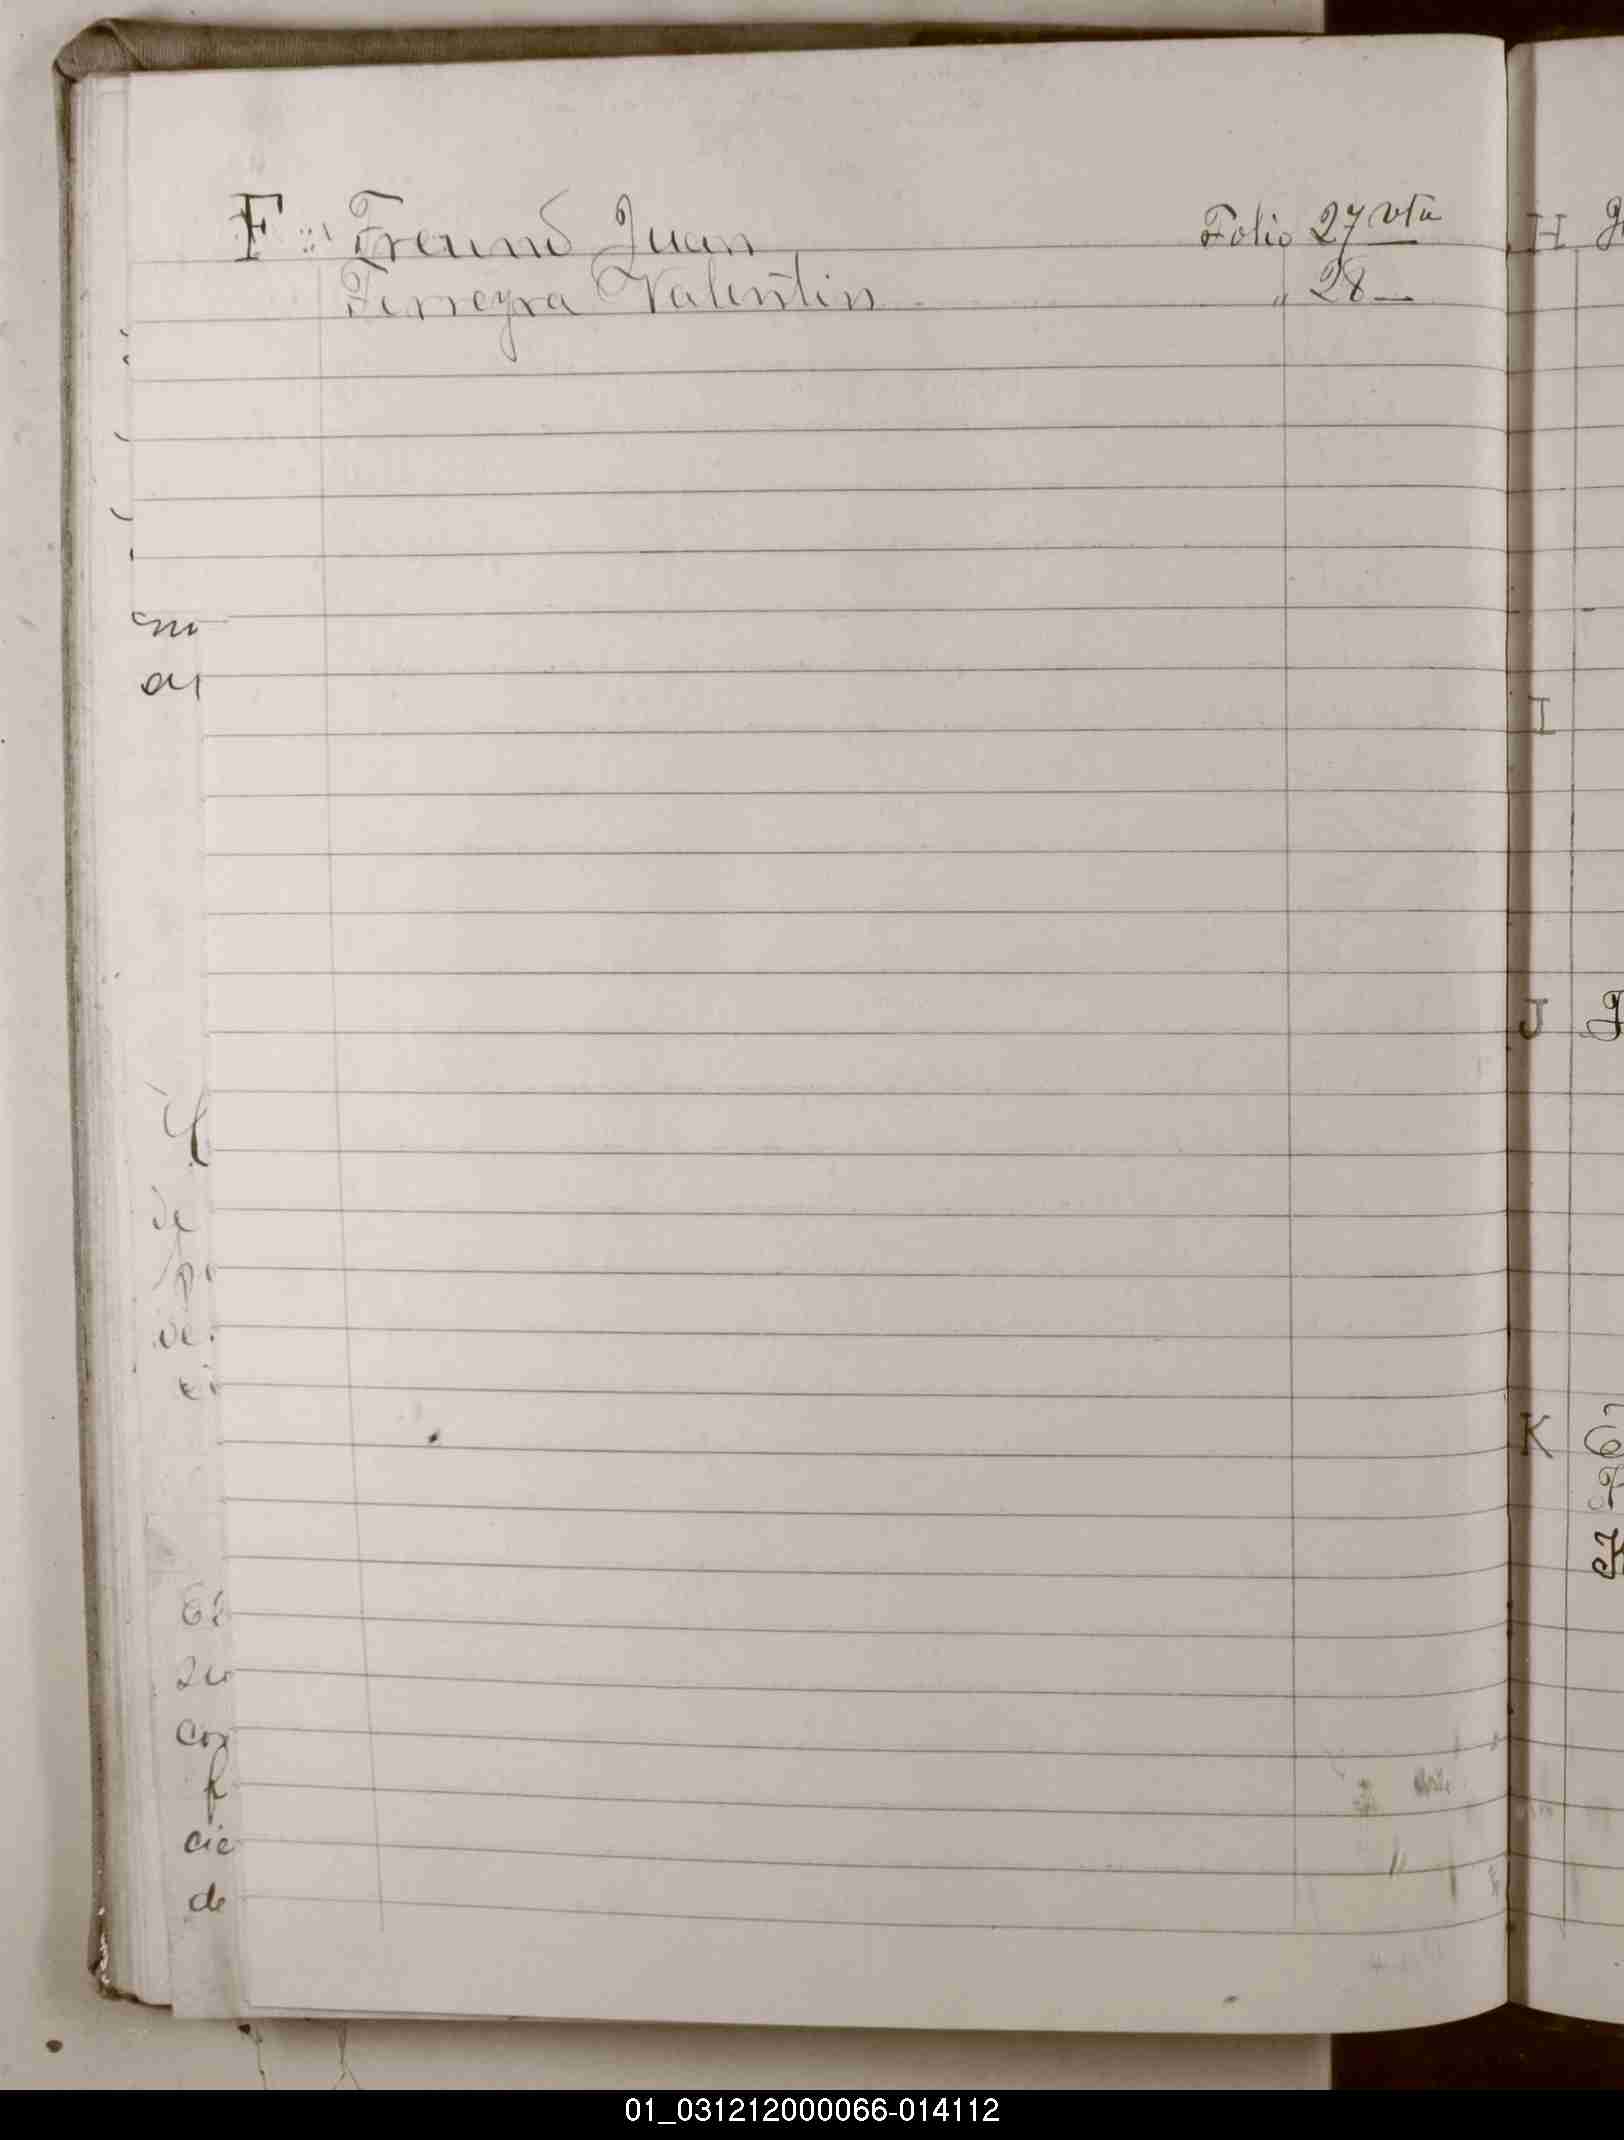 F Freund Juan Folio 27 vta
Ferreyra Valentin " 28
H
I
J
K
de
Con
cie
de
01_031212000066-014112